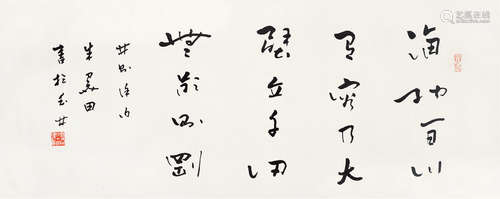 海納百川
有容乃大
壁立千仞
無欲則剛
林則徐句
朱關田
書於